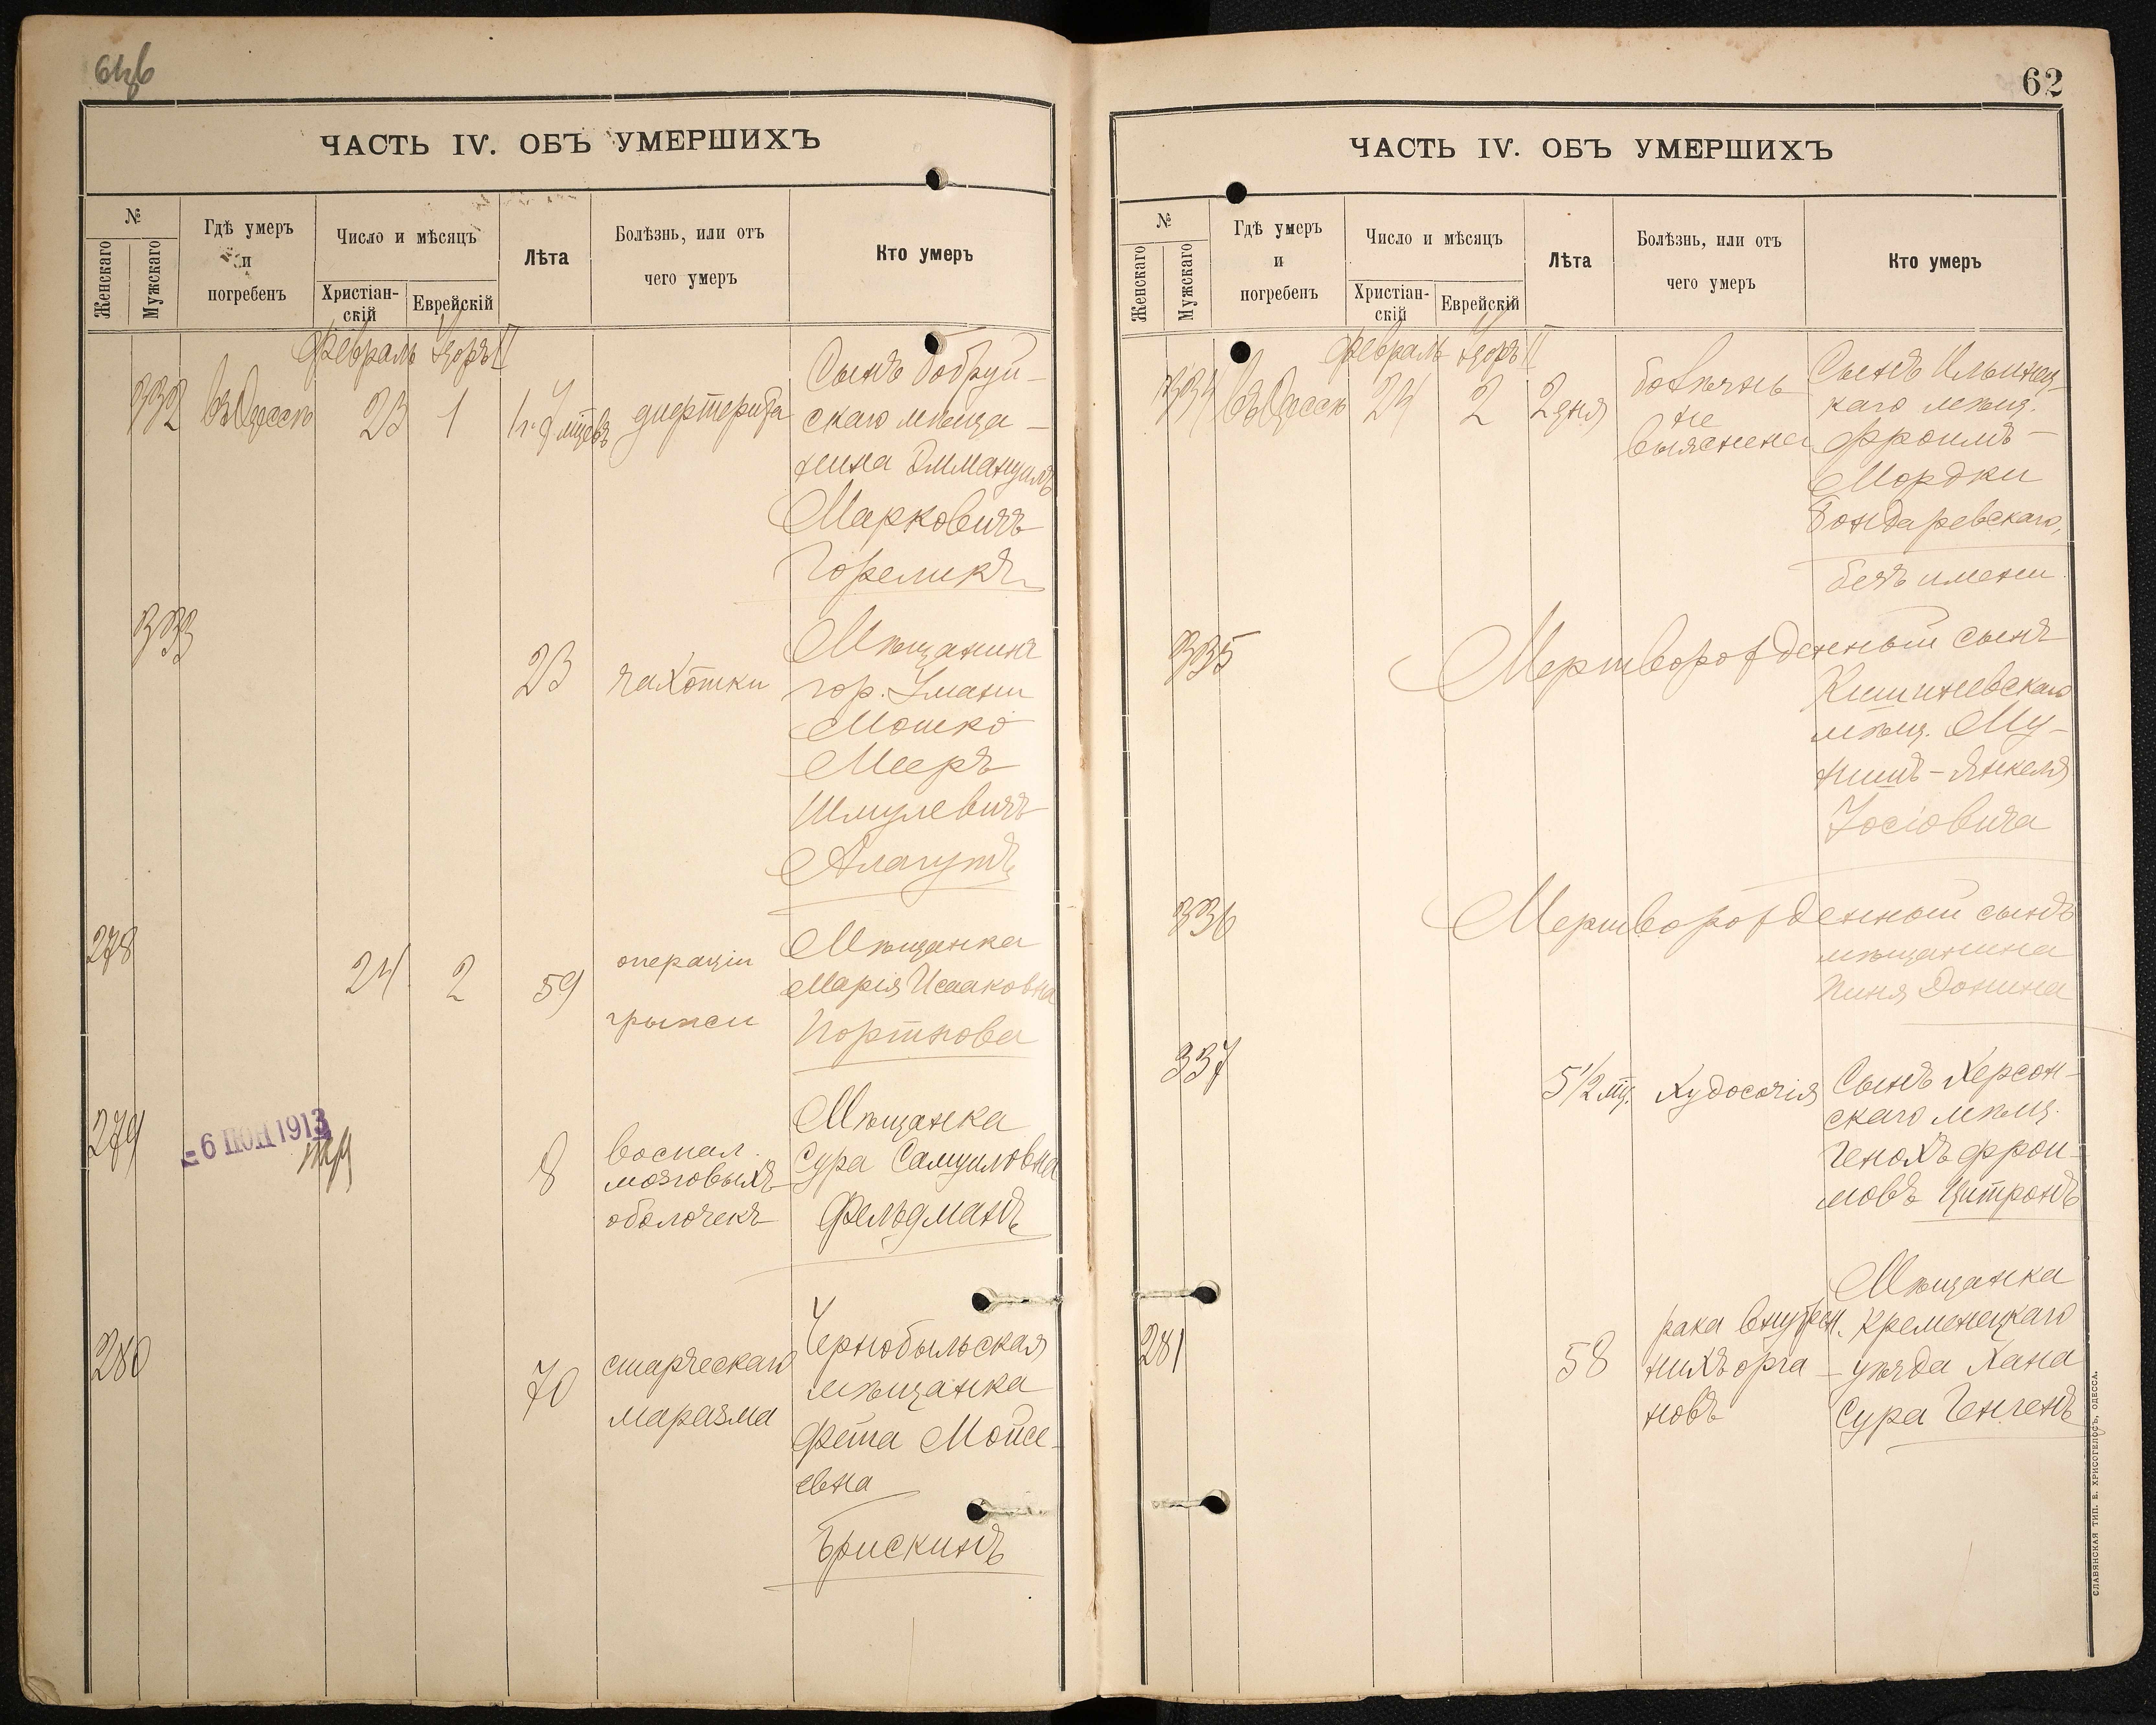 61об
ЧАСТЬ IV. ОБЪ УМЕРШИХЪ
№
Женскаго
Мужскаго
Гдѣ умеръ
и
погребенъ
Число и мѣсяцъ
Христіан-
скій
Еврейскій
Лѣта
Болѣзнь, или отъ
чего умеръ
Кто умеръ
Февраль Адаръ II
332 въ Одессѣ 23 1 1 г. 7 мцевъ дифтерита
Сынъ Бобруй-
скаго мѣща-
нина Эммануилъ
Марковичъ
Гореликъ
333 23 чахотки
Мѣщанинъ
гор. Умани
Мошко
Мееръ
Шмулевичъ
278 24 2 59 операціи
грыжи
Мѣщанка
Марія Исааковна
Портнова
279
- 6 ІЮН 1913
8 воспал.
мозговыхъ
оболочекъ
Мѣщанка
Сура Самуиловна
Фельдманъ
280 70 старческаго
маразма
Чернобыльская
мѣщанка
Фейга Мойсе-
евна
Брискинъ
62
ЧАСТЬ IV. ОБЪ УМЕРШИХЪ
№
Женскаго
Мужскаго
Гдѣ умеръ
и
погребенъ
Число и мѣсяцъ
Христіан-
скій
Еврейскій
Лѣта
Болѣзнь, или отъ
чего умеръ
Кто умеръ
Февраль Адаръ II
334 въ Одессѣ 24 2 2 дня болѣзнь
не
выяснена
Сынъ Ильинец-
каго мѣщ.
Фроимъ-
Мордки
Бондаревскаго,
безъ имени
335 Мертворожденный сынъ
Кишиневскаго
мѣщ. Му-
нишъ-Янкеля
Іосіовича
336 Мертворожденный сынъ
мѣщанина
Пиня Донина
337 5 1/2 мц. Худосочія
Сынъ Херсон-
скаго мѣщ.
Генохъ Фрои-
мовъ Цитронъ
281 58 рака внутрен-
нихъ орга-
новъ
Мѣщанка
Кременецкаго
уѣзда Хана
Сура Генгенъ
СЛАВЯНСКАЯ ТИП. Е. ХРИСОГЕЛОСЪ, ОДЕССА.